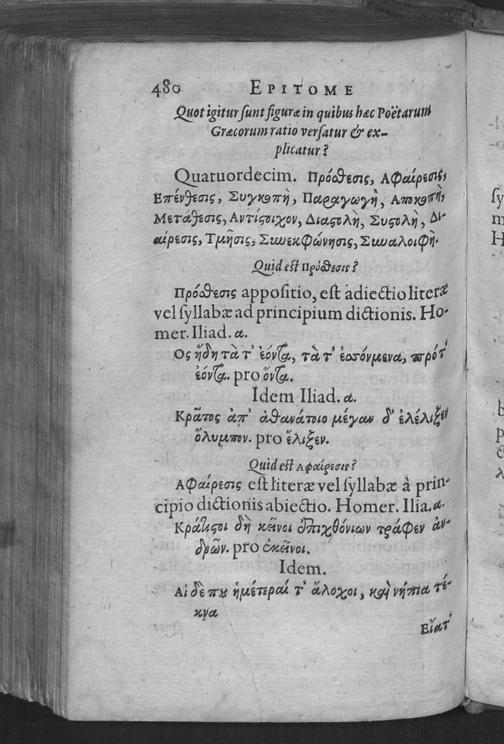 480 EPITOME
Quot igitur sunt figuræ in quibus hæc Poëtarum
Græcorum ratio versatur & ex-
plicatur?
Quatuordecim. Πρόσθεσις, Αφαίρεσις,
Επένθεσις, Συγκοπὴ, Παραγωγὴ, Αποκοπὴ,
Μετάθεσις, Αντίστοιχον, Διαστολὴ, Συστολὴ, Δι-
αίρεσις, Τμῆσις, Συνεκφώνησις, Συναλοιφή.
Quid est Πρόσθεσις?
Πρόσθεσις appositio, est adiectio literæ
vel syllabæ ad principium dictionis. Ho-
mer. Iliad. α.
Ος ἤδη τὰ τ' ἐόντα, τὰ τ' ἐσόμενα, πρό τ'
ἐόντα. pro ὄντα.
Idem Iliad. α.
Κρατος ἀπ' ἀθανάτοιο μέγαν δ' ἐλέλιξεν
ὄλυμπον. pro ἔλιξεν.
Quid est Αφαίρεσις?
Αφαίρεσις est literæ vel syllabæ à prin-
cipio dictionis abiectio. Homer. Ilia. α.
Κράτιστοι δὴ κεῖνοι ἐπιχθόνιων τράφεν ἀν-
δρῶν. pro ἐκεῖνοι.
Idem.
Αἱ δέ που ἡμέτεραί τ' ἄλοχοι, καὶ νήπια τέ-
κνα
Εἵατ'